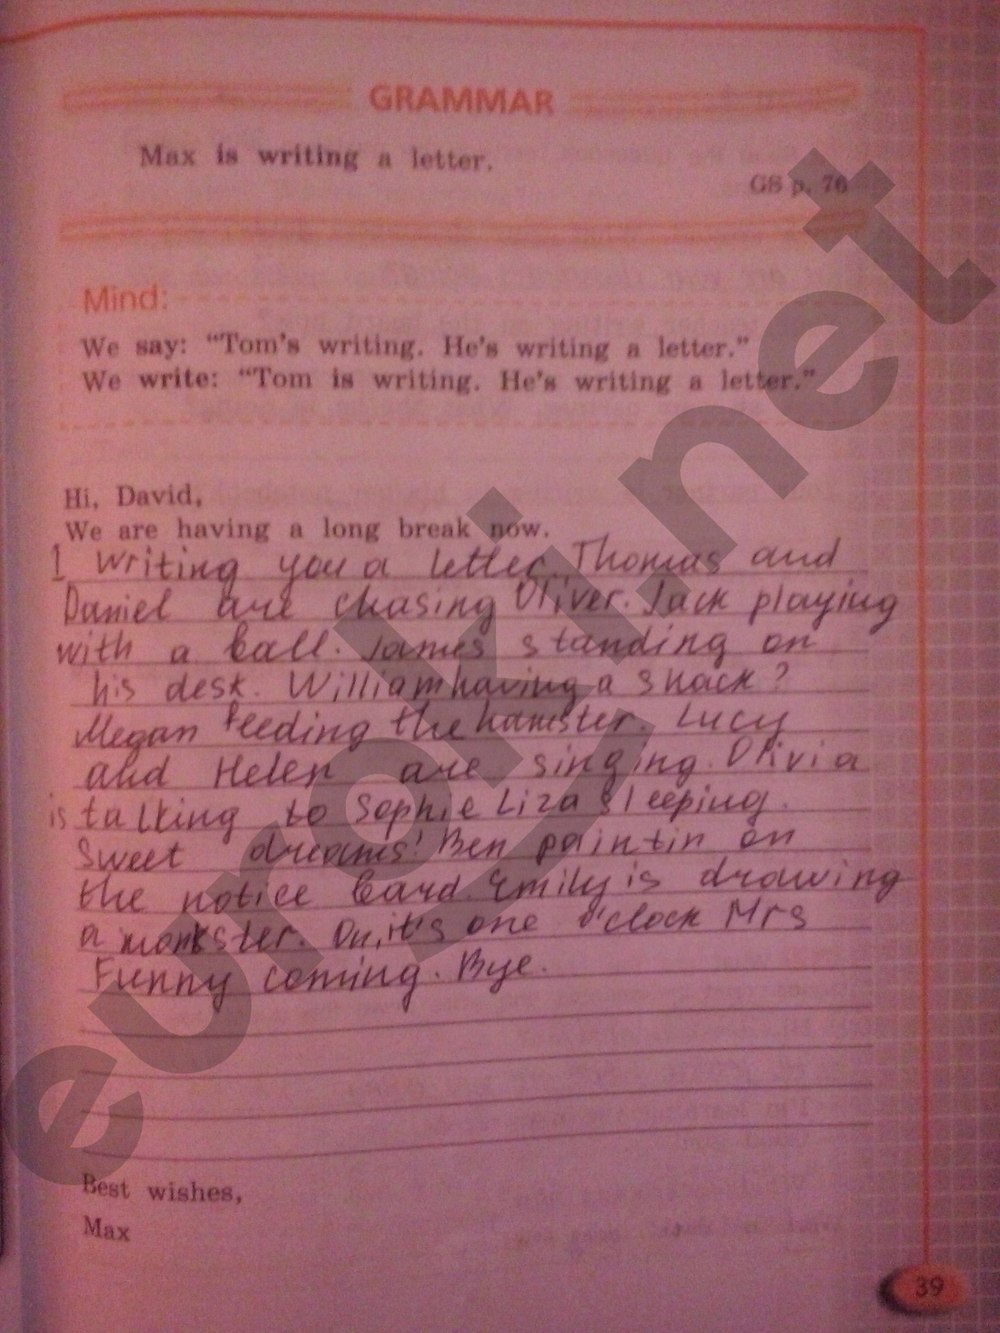 GRAMMAR
Max is writing a letter.
GS p. 76
Mind:
We say: "Tom's writing. He's writing a letter."
We write: "Tom is writing. He's writing a letter."
Hi, David,
We are having a long break now.
I writing you a letter. Thomas and
Daniel are chasing Oliver. Jack playing
with a ball. James standing on
his desk. William having a snack?
Megan feeding the hamster. Lucy
and Helen are singing. Olivia
is talking to Sophie Liza sleeping.
Sweet dreams! Ben paintin on
the notice bard. Emily is drawing
a monkster. On, it's one o'clock Mrs
Funny coming. Bye.
Best wishes,
Max
39
euroki.net